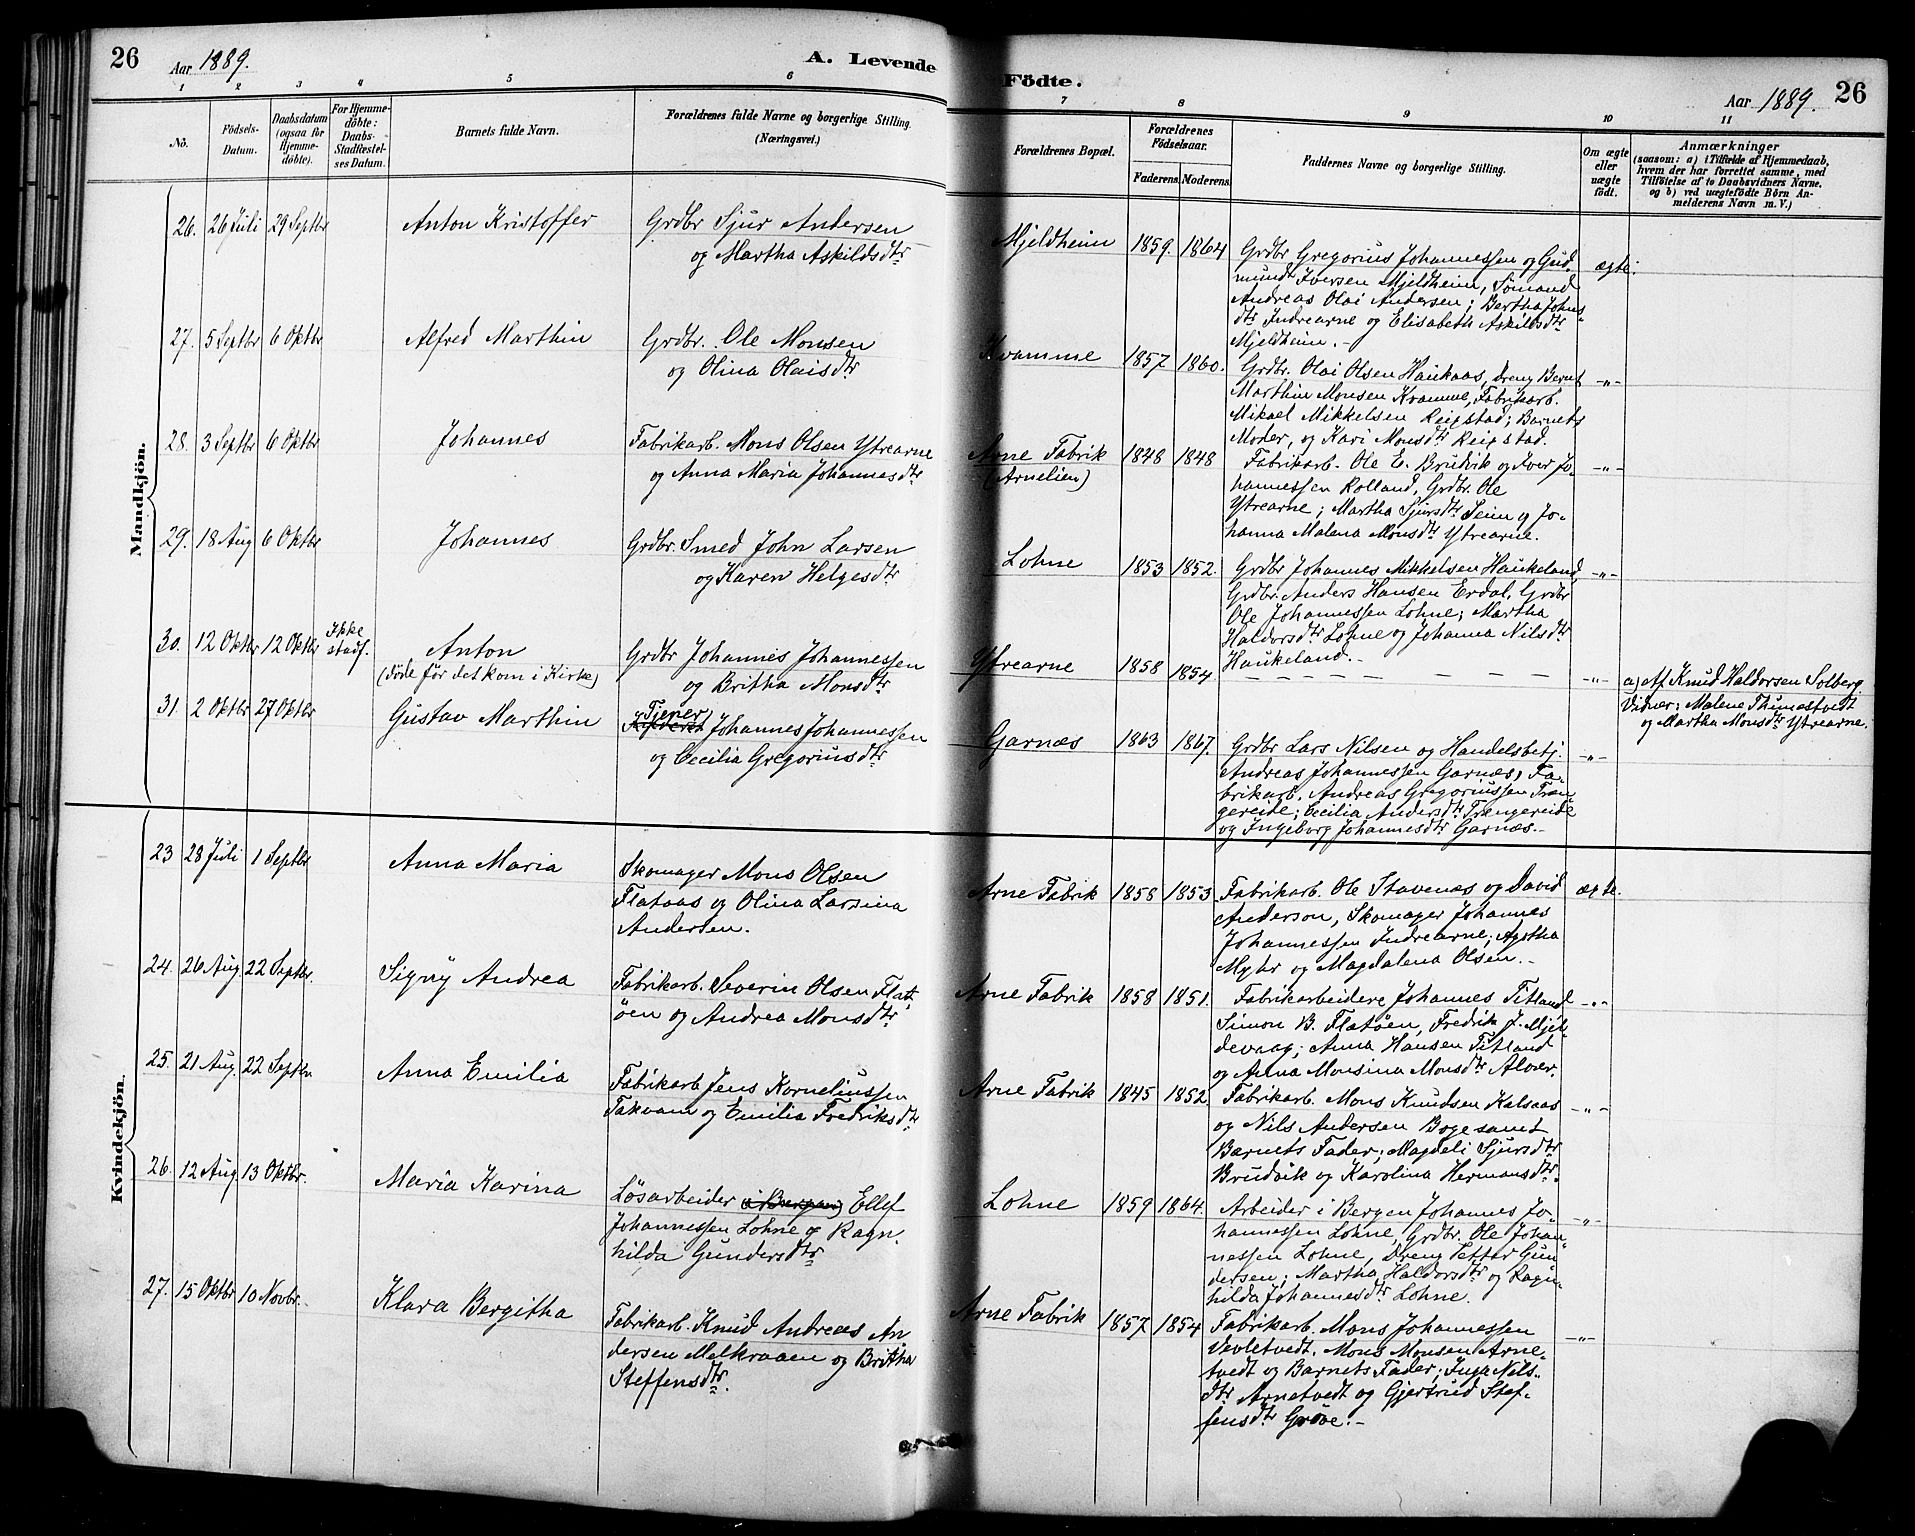 26
Aar 1889.
A. Levende
Födte.
Aar 1889.
26
1 2 3 4 5 6 7 8 9 10 11
No.
Födsels-
Datum.
Daabsdatum
(ogsaa för
Hjemme-
döbte).
For Hjemme-
döbte:
Daabs-
Stadfæstel-
ses Datum.
Barnets fulde Navn.
Forældrenes fulde Navne og borgerlige Stilling.
(Næringsvei.)
Forældrenes Bopæl.
Forældrenes
Födselsaar.
Faderens. Moderens.
Faddernes Navne og borgerlige Stilling.
Om ægte
eller
uægte
födt.
Anmærkninger
(saasom: a) i Tilfælde af Hjemmedaab,
hvem der har forrettet samme, med
Tilföielse af to Daabsvidners Navne,
og b) ved uægtefödte Börn An-
melderens Navn m. V.)
Mandkjön.
26. 26 Juli 29 Septbr Anton Kristoffer
Grdbr Sjur Andersen
og Martha Askildsdtr
Mjeldheim 1859. 1864
Grdbr Gregorius Johannessen og Gud-
mund Iversen Mjeldheim, Sömand
Andreas Olai Andersen; Bertha Johns-
dtr Indrearne og Elisabeth Askildsdtr
Mjeldheim.-
ægte.
27. 5 Septbr 6 Oktbr Alfred Marthin
Grdbr. Ole Monsen
og Olina Olaisdtr
Kvamme 1857 1860.
Grdbr. Olai Olsen Haukaas, Dreng Bernt
Marthin Monsen Kvamme, Fabrikarb.
Mikael Mikkelsen Reigstad; Barnets
Moder, og Kari Monsdtr Reigstad.
-"-
28. 3 Septbr 6 Oktbr Johannes
Fabrikarb. Mons Olsen Ytrearne
og Anna Maria Johannesdtr
Arne Fabrik
(Arnelien)
1848 1848
Fabrikarb. Ole E. Brudvik og Iver Jo-
hannessen Rolland, Grdbr. Ole
Ytrearne; Martha Sjursdtr Seim og Jo-
hanna Malena Monsdtr Ytrearne.
-"-
29. 18 Aug 6 Oktbr Johannes
Grdbr. Smed John Larsen
og Karen Helgesdtr
Lohne 1853 1852.
Grdbr Johannes Mikkelsen Haukeland,
Grdbr. Anders Hansen Erdal, Grdbr
Ole Johannessen Lohne; Martha
Haldorsdtr Lohne og Johanna Nilsdtr
Haukeland.-
-"-
30. 12 Oktbr 12 Oktbr Ikke
stadf.
Anton
(döde för det kom i Kirke)
Grdbr Johannes Johannessen
og Britha Monsdtr
Ytrearne 1858 1854.
- - - - - - -
-"-
a) Af Knud Haldorsen Solberg.
Vidner: Malene Thunestvedt
og Martha Monsdtr Ytrearne.
31. 2 Oktbr 27 Oktbr Gustav Marthin
Tjener
Johannes Johannessen
og Cecilia Gregoriusdtr
Garnæs 1863 1867.
Grdbr Lars Nilsen og Handelsbetj.
Andreas Johannessen Garnæs, Fa-
brikarb. Andreas Gregoriussen Træn-
gereide; Cecilia Andersdtr Trængereide
og Ingeborg Johannesdtr Garnæs.-
-"-
Kvindekjön.
23 28 Juli 1 Septbr Anna Maria
Skomager Mons Olsen
Flataas og Olina Larsina
Andersen.
Arne Fabrik 1858 1853
Fabrikarb. Ole Stavenæs og David
Anderson, Skomager Johannes
Johannessen Indrearne; Agatha
Myhr og Magdalena Olsen.-
ægte.
24. 26 Aug. 22 Septbr. Signy Andrea
Fabrikarb. Severin Olsen Flat-
öen og Andrea Monsdtr
Arne Fabrik 1858 1851.
Fabrikarbeidere Johannes Titland
Simon B. Flatöen, Fredrik J. Mjel-
devaag; Anna Hansen Titland
og Anna Monsina Monsdtr Alver.
-"-
25. 21 Aug. 22 Septbr Anna Emilia
Fabrikarb. Jens Korneliussen
Takvam og Emilia Fredriksdtr
Arne Fabrik 1845 1852.
Fabrikarb. Mons Knudsen Kalsaas
og Nils Andersen Boge samt
Barnets Fader; Magdeli Sjursdtr
Brudvik og Karolina Hermansdtr.
-"-
26. 12 Aug 13 Oktbr. Maria Karina
Lösarbeider (i Bergen) Ellef
Johannessen Lohne og Ragn-
hilda Gundersdtr
Lohne 1859 1864.
Arbeider i Bergen Johannes Jo-
hannessen Lohne, Grdbr. Ole Johan-
nessen Lohne, Dreng Petter Gun-
dersen; Martha Haldorsdtr og Ragn-
hilda Johannesdtr Lohne.
-"-
27. 15 Oktbr 10 Novbr. Klara Bergitha
Fabrikarb. Knud Andreas An-
dersen Melkraaen og Britha
Steffensdtr.
Arne Fabrik 1857 1854
Fabrikarb. Mons Johannessen
Vevletvedt, Mons Monsen Arne-
tvedt og Barnets Fader; Inga Nils-
dtr Arnetvedt og Gjertrud Stef-
fensdtr Gröve.-
-"-